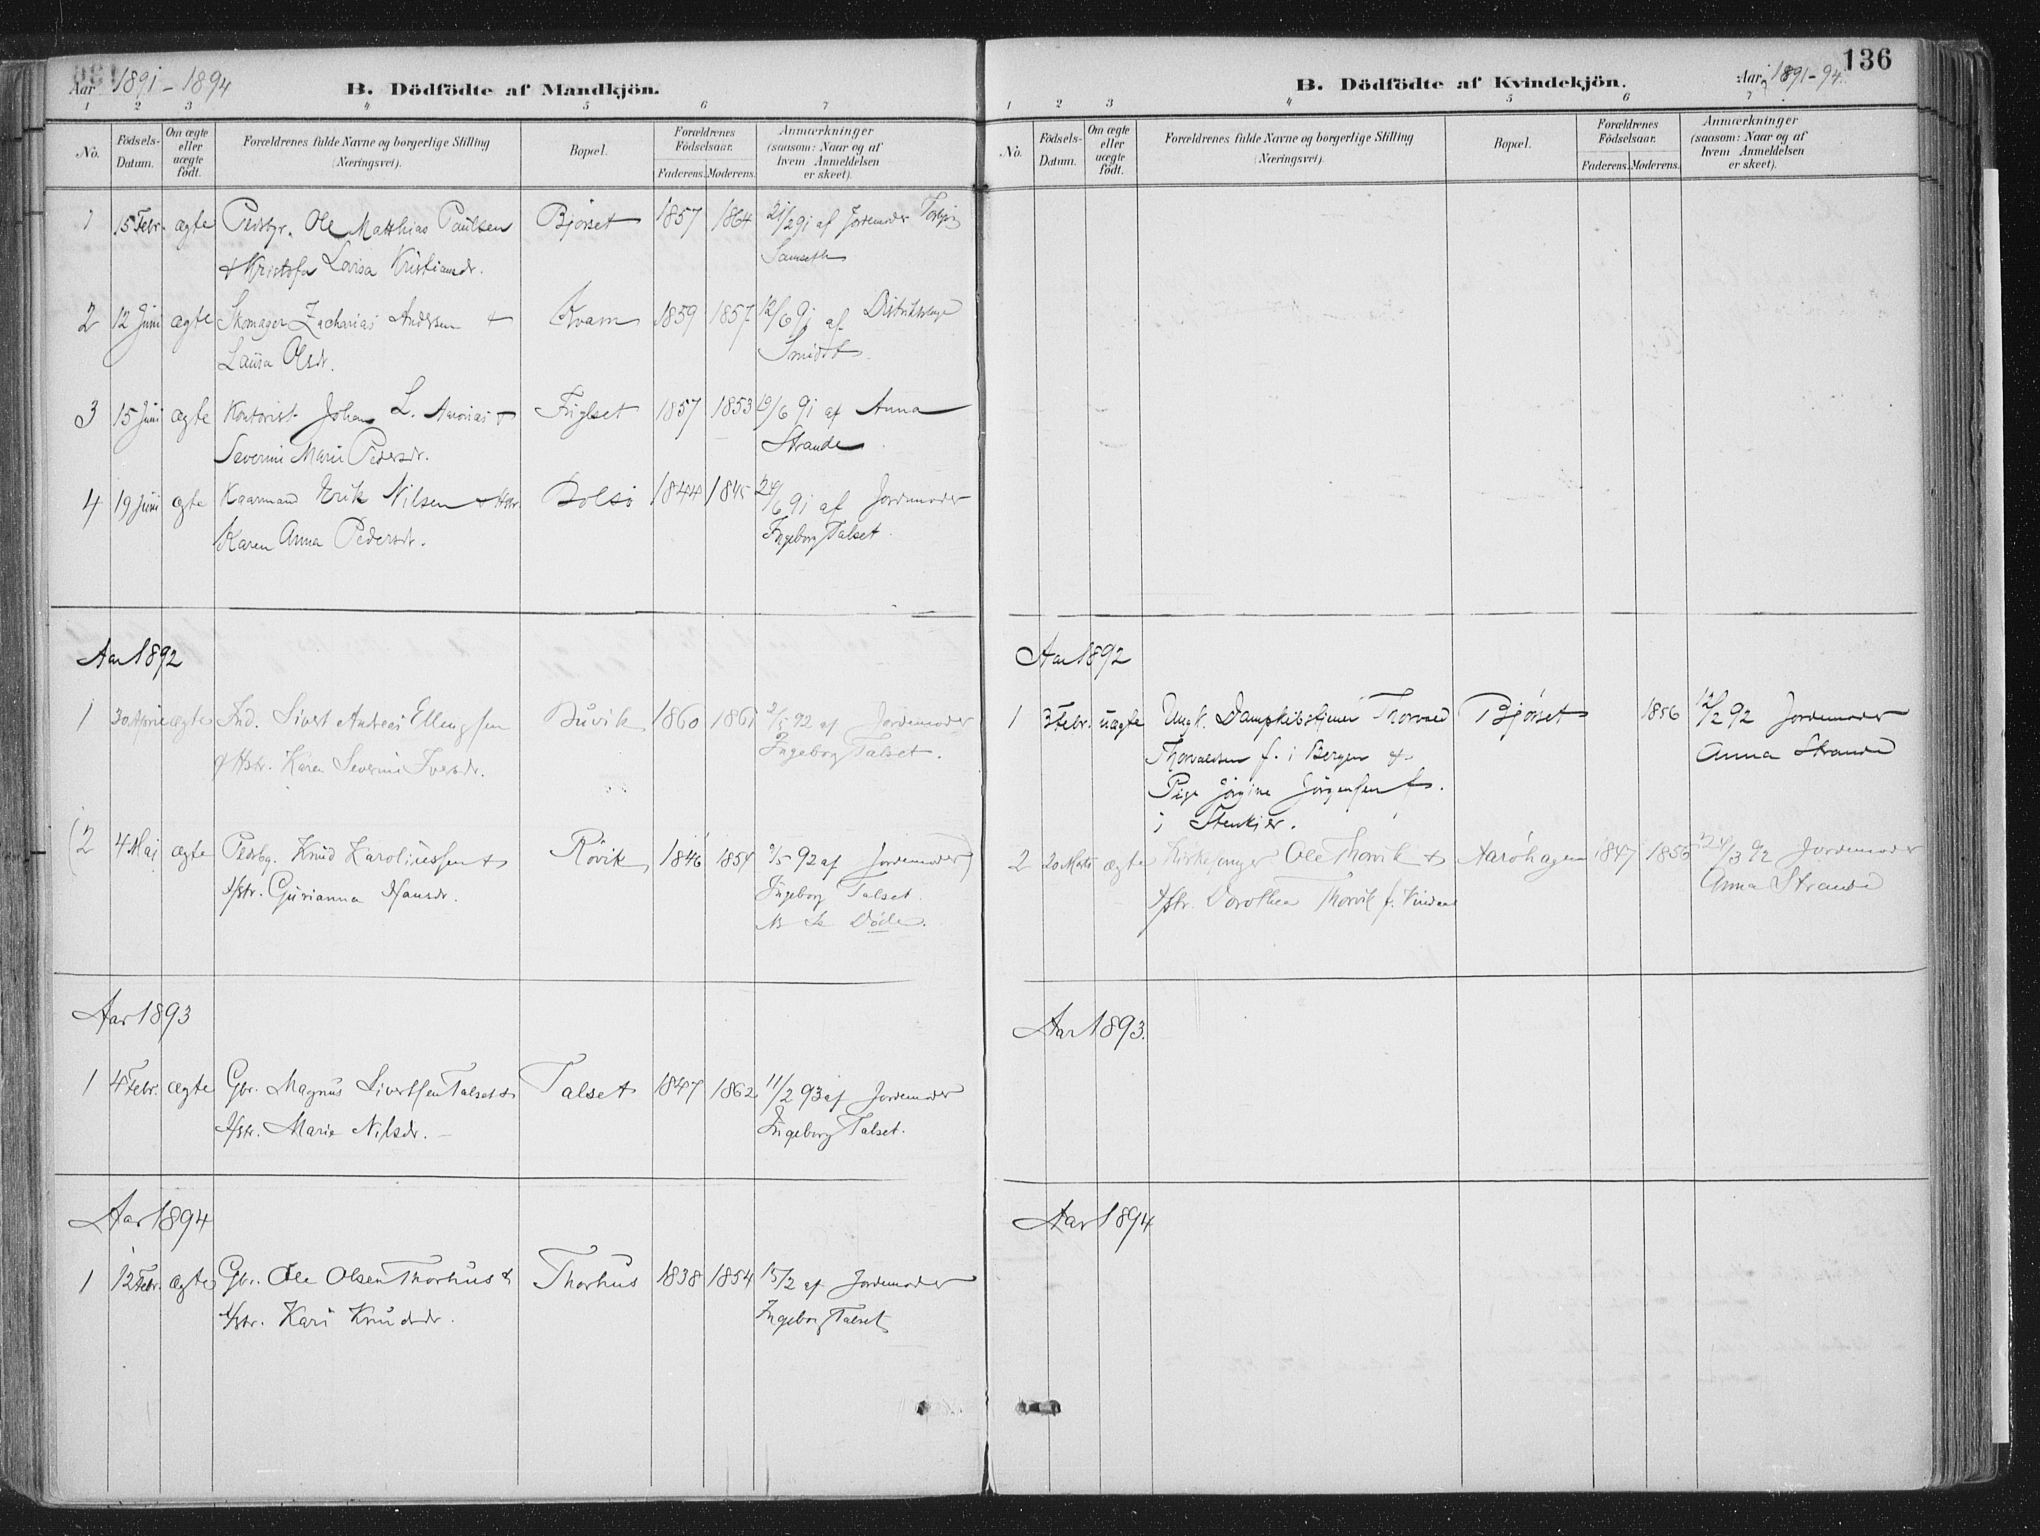 Aar 1891-1894
B. Dödfödte af Mandkjön.
1 2 3 4 5 6 7
No.
Födsels-Datum.
Om ægte eller uægte födt.
Forældrenes fulde Navne og borgerlige Stilling (Næringsvei).
Bopæl.
Forældrenes Födselsaar.
Faderens. Moderens.
Anmærkninger (saasom: Naar og af hvem Anmeldelsen er skeet).
1 15 Febr. ægte Ole Matthias Paulsen Bjørset 1857 1864 21/2 91 af Jordemoder
& Kristofa Lovisa Kristiansdr.
2 12 Juni ægte Skomager Zacharias Andersen & Kvam 1859 1857 12/6 91 af Distriktslæge
Laura Olsdr. Smidt
3 15 Juni ægte Kontorist Johan L. Aarønæs & Fuglset 1857 1853 19/6 91 af Anna
Severine Marie Pedersdr. Strande
4 19 Juni ægte Kaarmand Erik Nilsen & Hstr. Bolsø 1844 1845 24/6 91 af Jordemoder
Karen Anna Pedersdr. Ingeborg Talset
Aar 1892
1 30 April ægte Ind. Sivert Andreas Ellingsen 1860 1861 2/5 92 af Jordemoder
& Hstr. Karen Severine Iversdr. Ingeborg Talset.
(2 4 Maj ægte Knud Karoliussen & Røvik 1846 1854 9/5 92 af Jordemoder)
Hstr. Gurianna Hansdr. Ingeborg Talset.
Døde.
Aar 1893
1 4 Febr. ægte Gbr. Magnus Sivertsen Talset & Talset 1847 1862 11/2 93 af Jordemoder
Hstr. Marie Nilsdr. Ingeborg Talset.
Aar 1894
1 12 Febr. ægte Gbr. Ole Olsen Thorhus & Thorhus 1838 1854 15/2 af Jordemoder
Hstr. Kari Knudsdr. Ingeborg Talset
136
B. Dödfödte af Kvindekjön.
Aar 1891-94.
1 2 3 4 5 6 7
No.
Födsels-Datum.
Om ægte eller uægte födt.
Forældrenes fulde Navne og borgerlige Stilling (Næringsvei).
Bopæl.
Forældrenes Födselsaar.
Faderens. Moderens.
Anmærkninger (saasom: Naar og af hvem Anmeldelsen er skeet).
Aar 1892
1 3 Febr. uægte Ungk. Thorvald Bjørset 1856 12/2 92 Jordemoder
Thorvaldsen f. i Bergen & Anna Strande
Pige Jørgine Jørgensen f.
i Stenkjer.
2 20 Marts ægte Kirkesanger Ole Thorvik & Aarøhagen 1847 1855 24/3 92 Jordemoder
Hstr. Dorothea Thorvik f. Anna Strande
Aar 1893.
Aar 1894